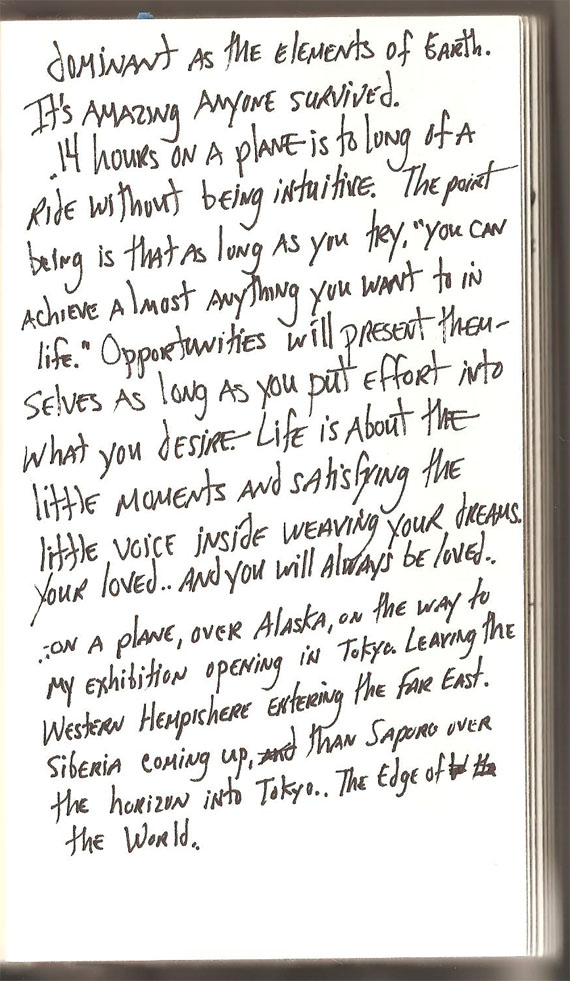 dominant as the elements of Earth.
It's Amazing Anyone survived.
.14 hours on a plane is to long of a
Ride without being intuitive. The point
being is that as long as you try, "you can
achieve almost anything you want to in
life." Opportunities will present them-
selves as long as you put effort into
what you desire. Life is about the
little moments and satisfying the
little voice inside weaving your dreams.
Your loved.. And you will always be loved..
.:on a plane, over Alaska, on the way to
my exhibition opening in Tokyo. Leaving the
Western Hempishere entering the Far East.
Siberia coming up, and than Saporo over
the horizon into Tokyo.. The Edge of
the World.